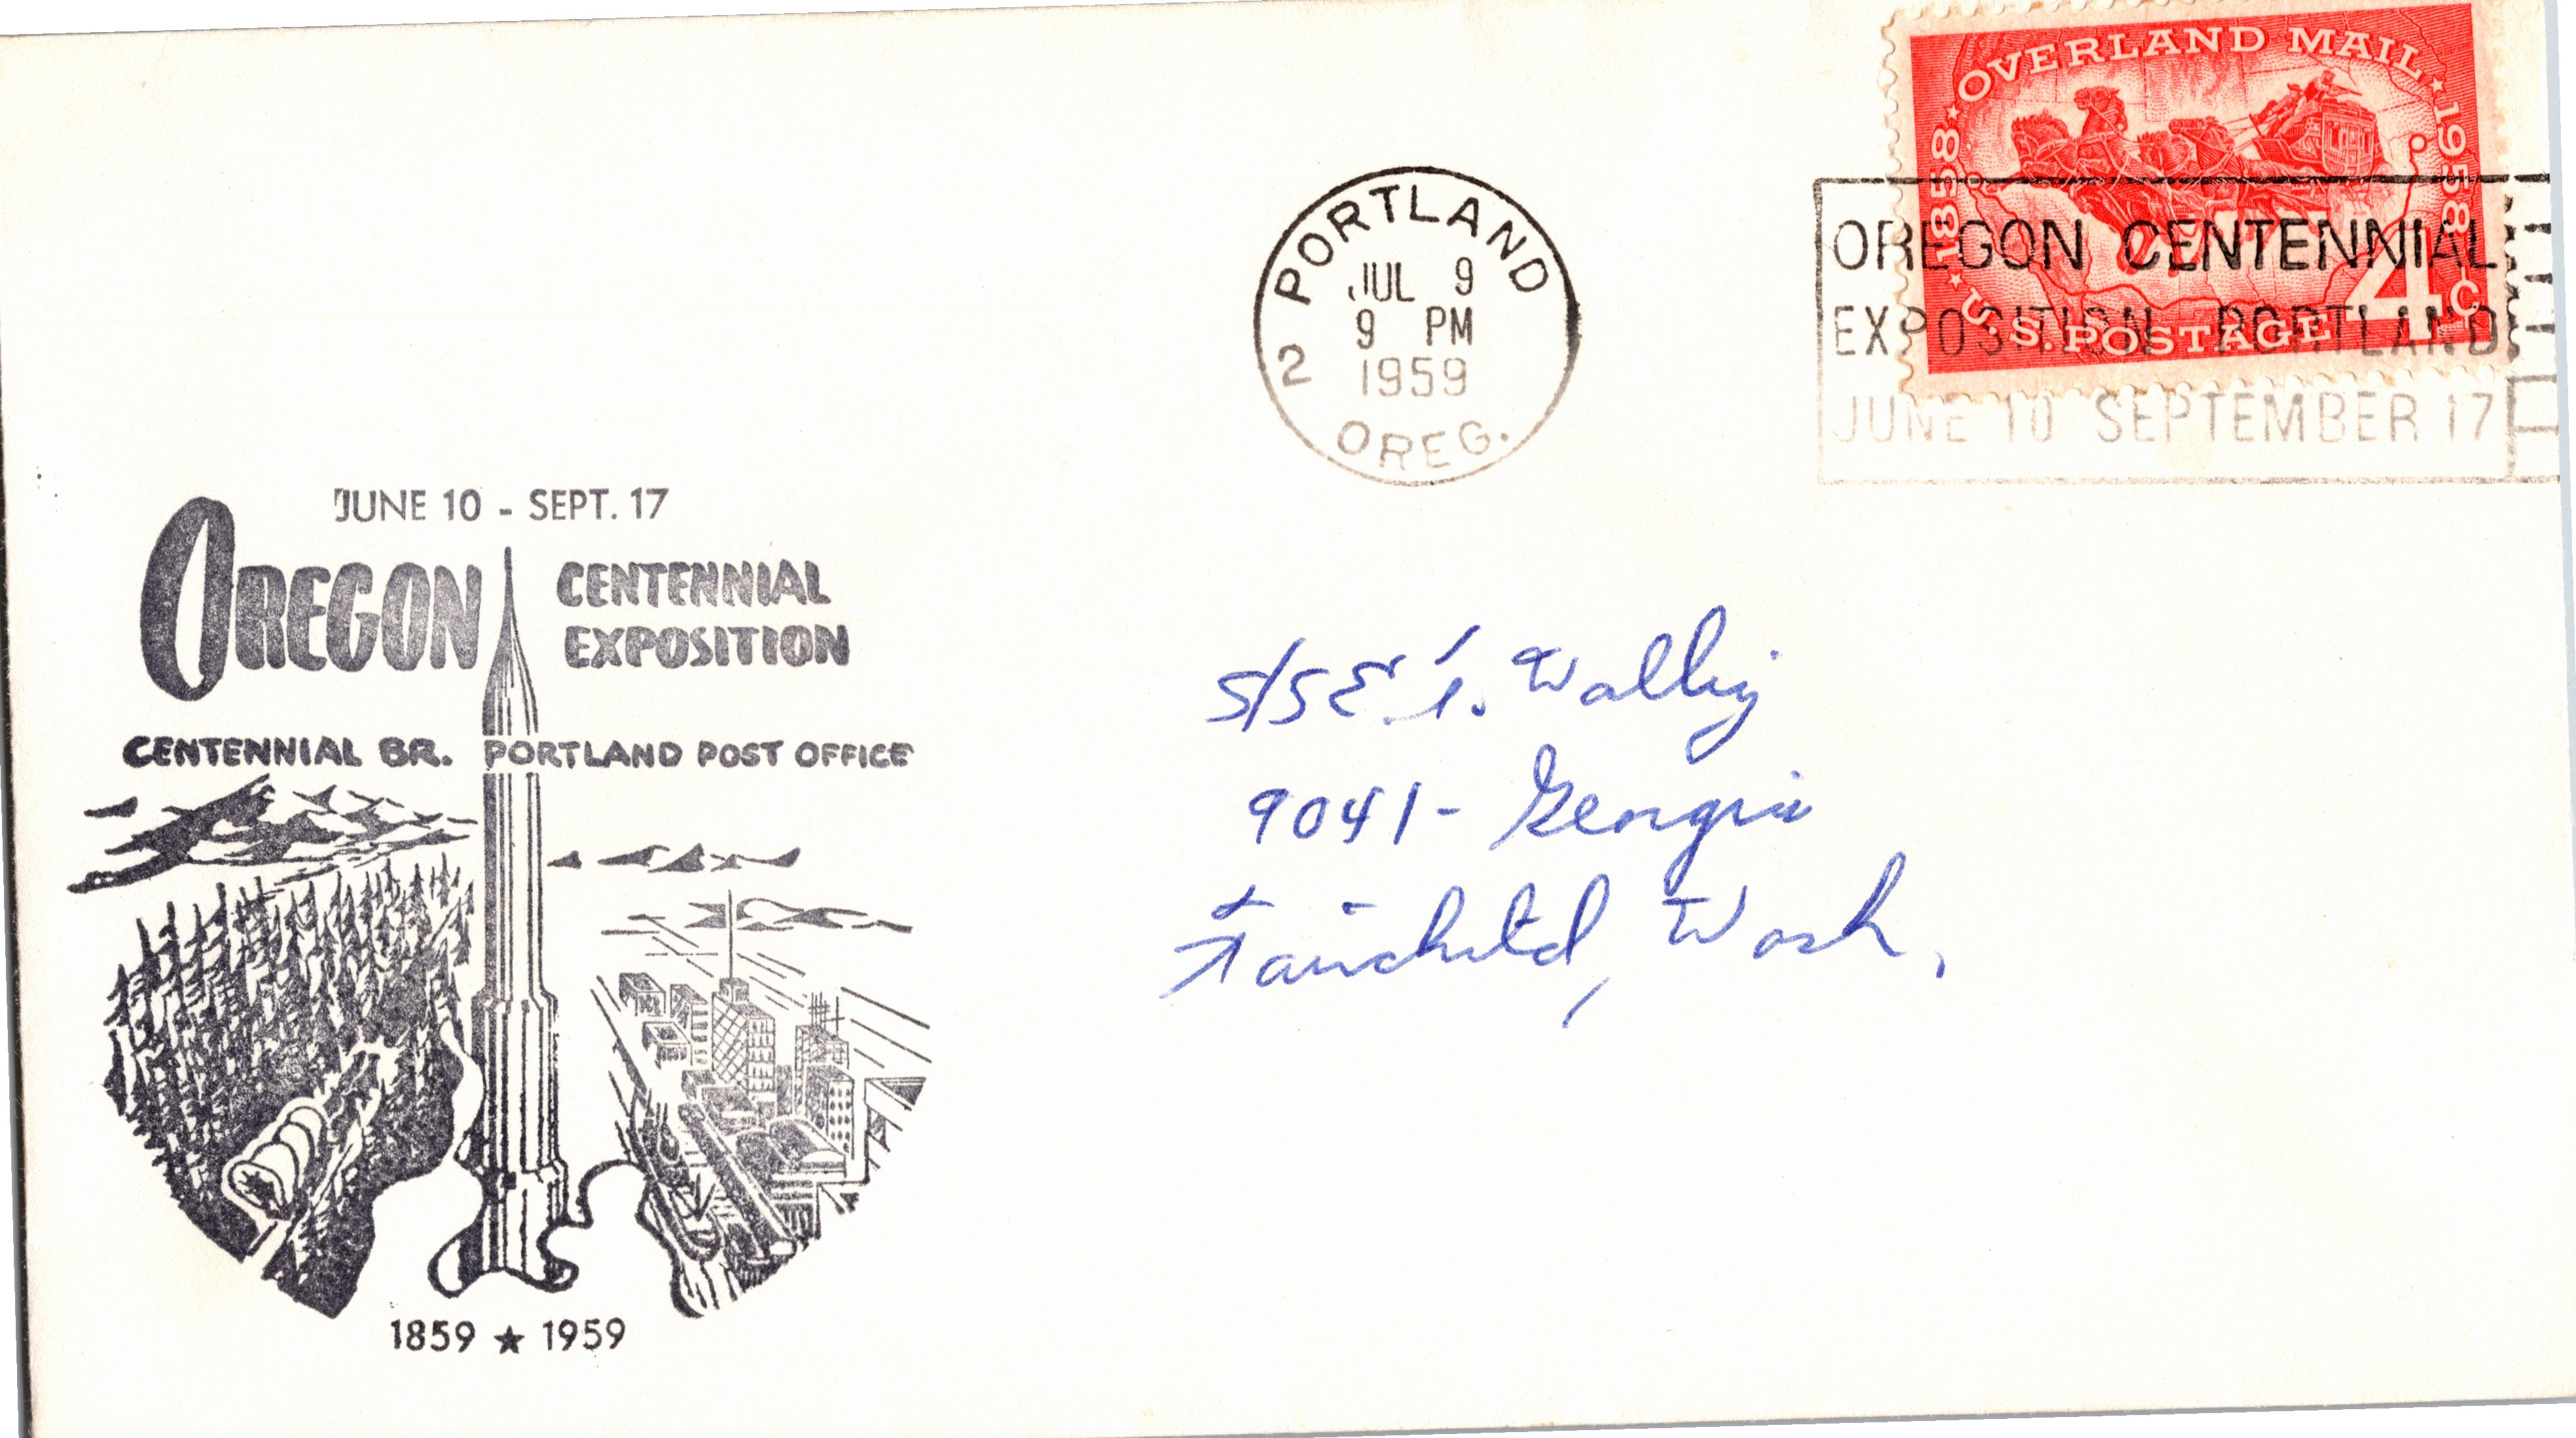 OVERLAND MAIL
1858
1958
U.S. POSTAGE 4c
PORTLAND
JUL 9
9 PM
1959
2
OREG.
OREGON CENTENNIAL
EXPOSITION PORTLAND
JUNE 10 SEPTEMBER 17
JUNE 10 - SEPT. 17
OREGON CENTENNIAL
EXPOSITION
CENTENNIAL BR. PORTLAND POST OFFICE
1859 ★ 1959
9041- Georgia
Fairchild, Wash.